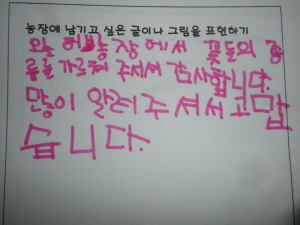 농장에 남기고 싶은 글이나 그림을 표현하기
오늘 농장에서 꽃들의 종
류를 가르쳐 주셔서 감사합니다.
많이 알려주셔서 고맙
습니다.